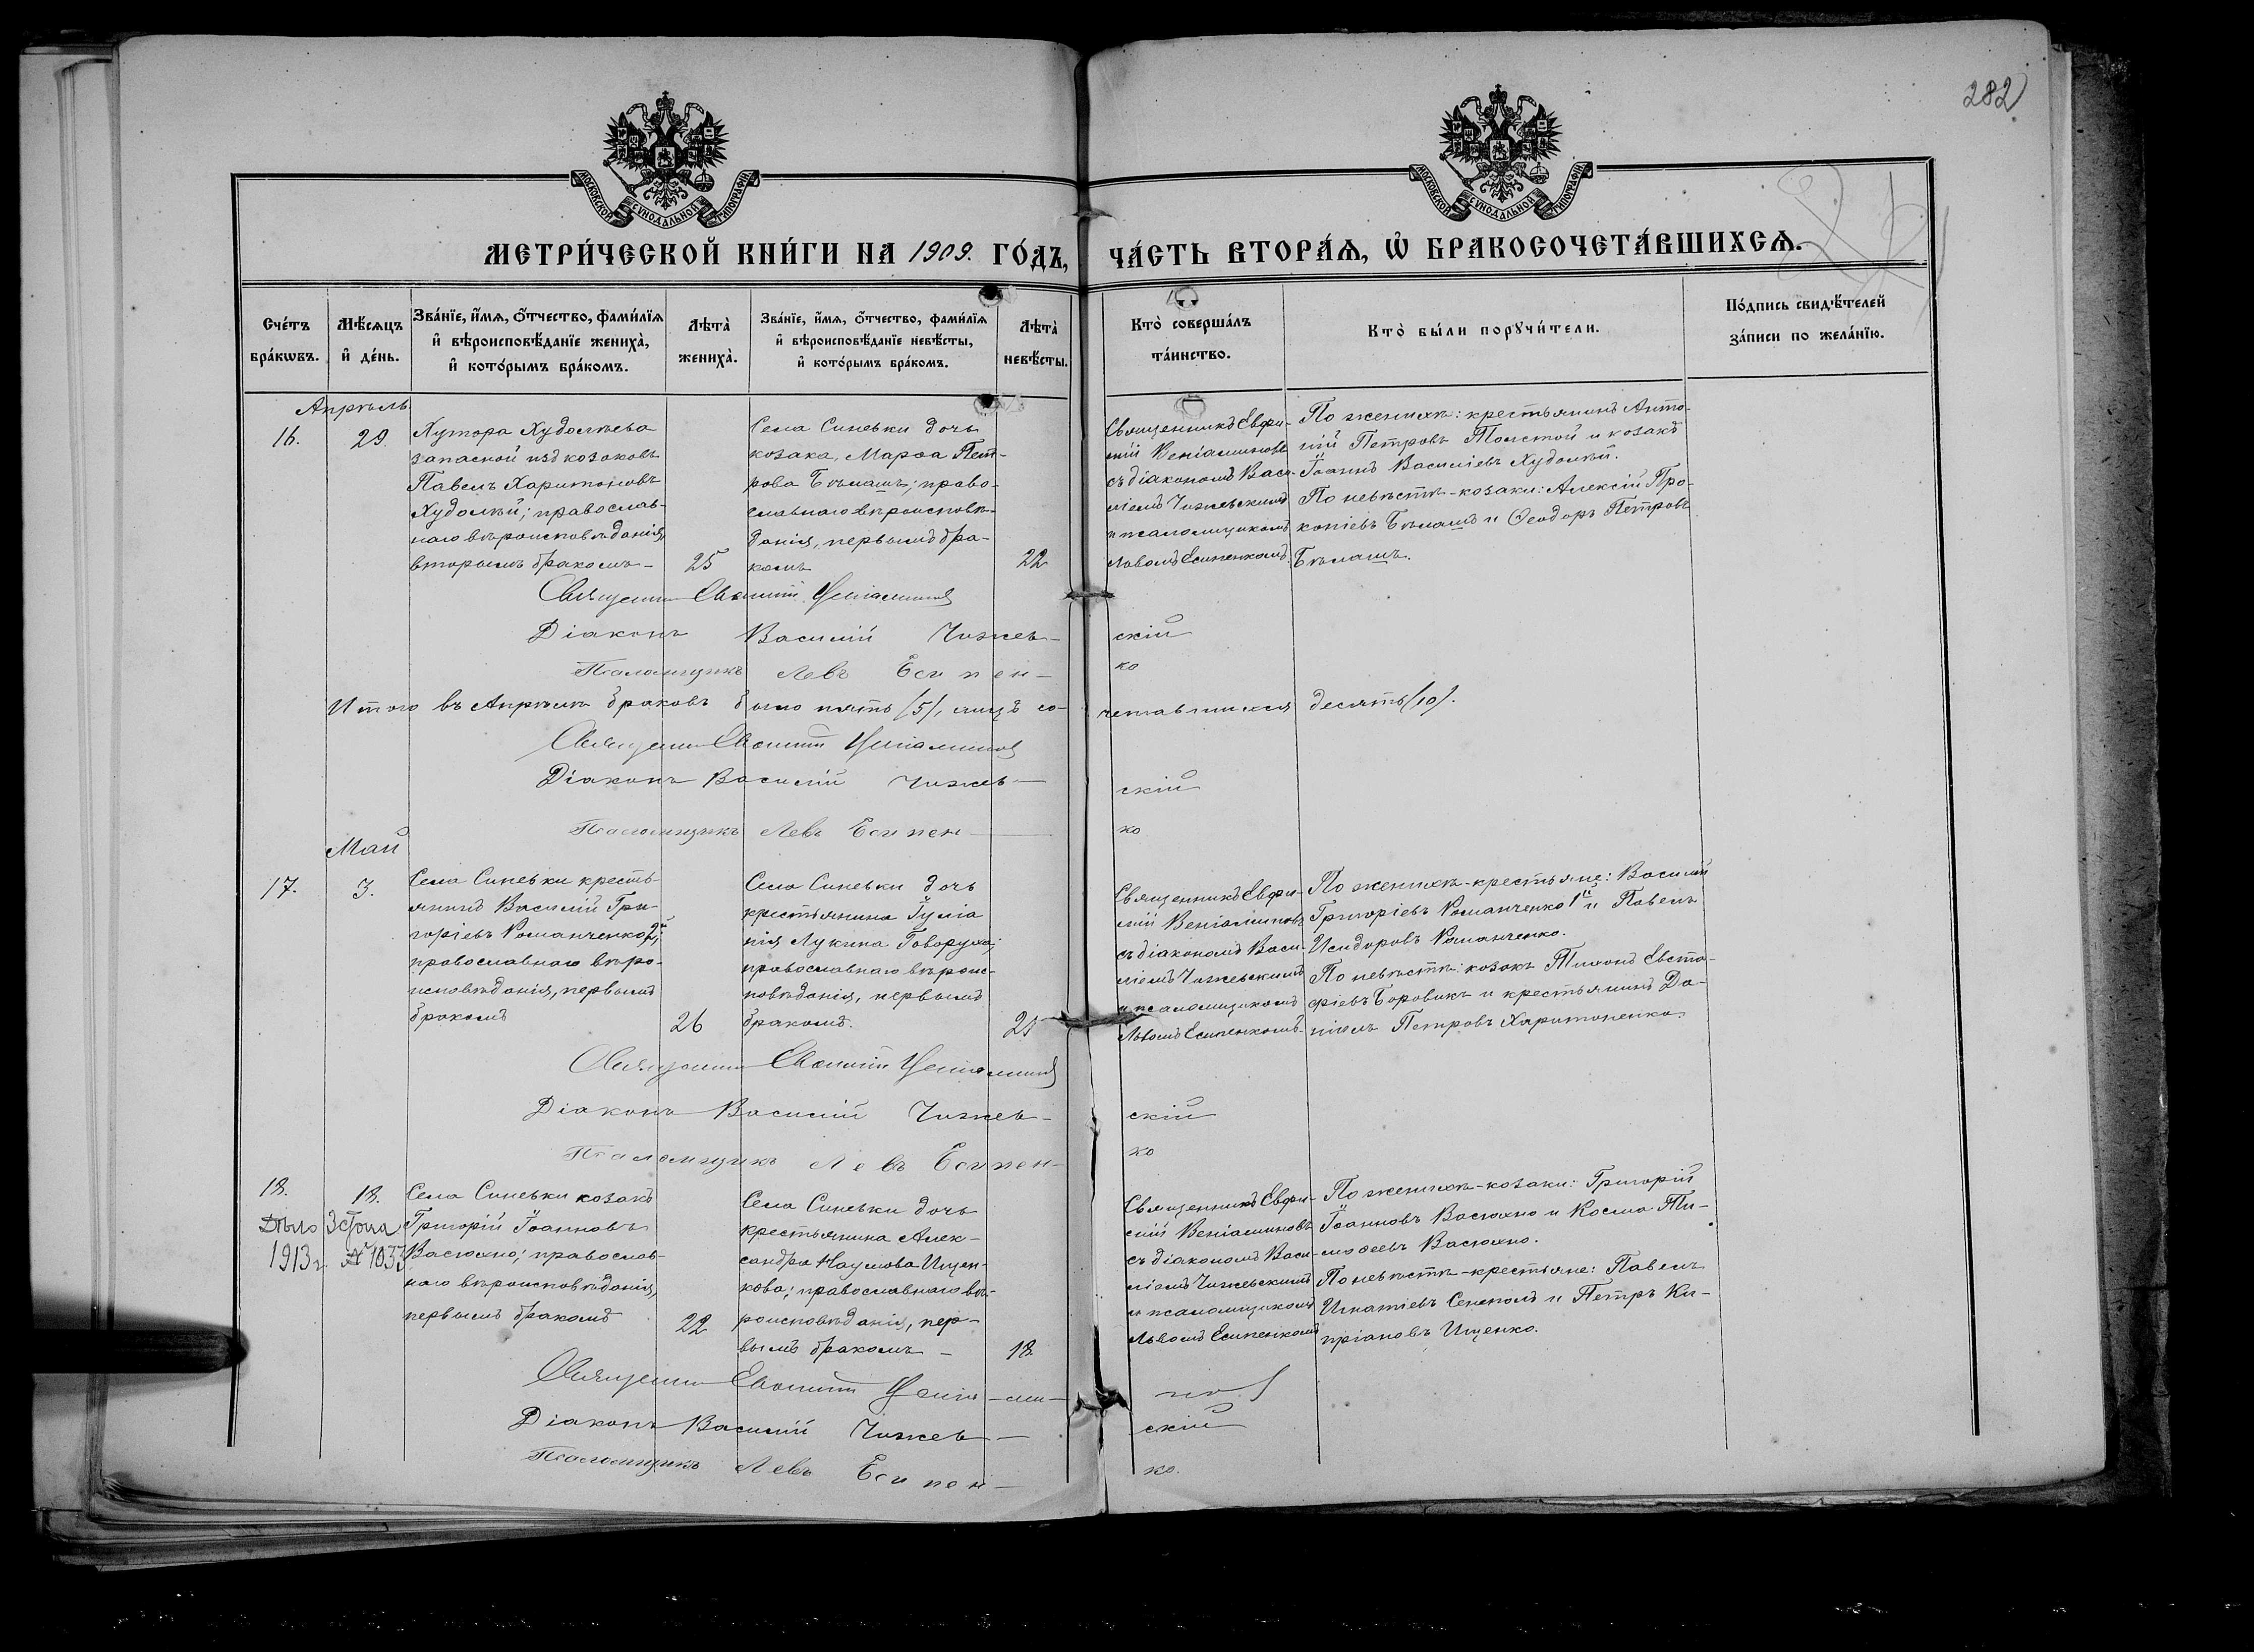 282
МОСКОВСКОЙ СѴНОДАЛЬНОЙ ТИПОГРАФІИ
МОСКОВСКОЙ СѴНОДАЛЬНОЙ ТИПОГРАФІИ
МЕТРИ́ЧЕСКОЙ КНИ́ГИ НА 1909. ГО́ДЪ, ЧА́СТЬ ВТОРА́Ѧ, Ѽ БРАКОСОЧЕТА́ВШИХСѦ.
Сче́тъ
бра́кѡвъ.
Мѣ́сѧцъ
и҆ де́нь.
Зва́нїе, и҆́мѧ, ѻ҆́тчество, фами́лїѧ
и҆ вѣроисповѣ́данїе жениха̀,
и҆ кото́рымъ бра́комъ.
Лѣта̀
жениха̀.
Зва́нїе, и҆́мѧ, ѻ҆́тчество, фами́лїѧ
и҆ вѣроисповѣ́данїе невѣ́сты,
и҆ кото́рымъ бра́комъ.
Лѣта̀
невѣ́сты.
Кто̀ соверша́лъ
та́инство.
Кто̀ бы́ли порꙋчи́тели.
По́дпись свидѣ́телей
за́писи по жела́нїю.
Апрѣль
16.
29.
Хутора Худолѣева
запасной изъ козаковъ
Павелъ Харитоновъ
Худолѣй; православ-
наго вѣроисповѣданія,
вторымъ бракомъ –
25
Села Синевки дочь
козака, Марѳа Пет-
рова Бѣлашъ; право-
славнаго вѣроисповѣ-
данія, первымъ бра-
комъ
22
Священникъ Евфи-
мій Веніаминовъ
съ діакономъ Васи-
ліемъ Чижевскимъ
и псаломщикомъ
Львомъ Есипенкомъ.
По женихѣ: крестьянинъ Анто-
ній Петровъ Толстой и козакъ
Іоаннъ Василіевъ Худолѣй.
По невѣстѣ – козаки: Алексій Про-
копіевъ Бѣлашъ и Ѳеодоръ Петровъ
Бѣлашъ.
Священникъ Евѳимій Веніаминовъ
Діаконъ Василій Чижев-скій
Псаломщикъ Левъ Есипен-ко
Итого въ Апрѣлѣ браковъ было пять /5/, лицъ со-четавшихся десять /10/.
Священникъ Евѳимій Веніаминовъ
Діаконъ Василій Чижев-скій
Псаломщикъ Левъ Есипен-ко
Май
17.
3.
Села Синевки кресть-
янинъ Василій Гри-
горіевъ Романченко 2й;
православнаго вѣро-
исповѣданія, первымъ
бракомъ
26
Села Синевки дочь
крестьянина Іулія
нія Лукина Говоруха;
православнаго вѣроис-
повѣданія, первымъ
бракомъ.
21
Священникъ Евфи-
мій Веніаминовъ
съ діакономъ Васи-
ліемъ Чижевскимъ
и псаломщикомъ
Львомъ Есипенкомъ.
По женихѣ – крестьяне: Василій
Григоріевъ Романченко 1й и Павелъ
Исидоровъ Романченко.
По невѣстѣ: козакъ Тихонъ Евста-
фіевъ Боровикъ и крестьянинъ Да-
ніилъ Петровъ Харитоненко.
Священникъ Евѳимій Веніаминовъ
Діаконъ Василій Чижев-скій
Псаломщикъ Левъ Есипен-ко
18.
18.
Дѣло 3 стола
1913 г. № 1033
Села Синевки козакъ
Григорій Іоанновъ
Васюхно; православ-
наго вѣроисповѣданія,
первымъ бракомъ
22
Села Синевки дочь
крестьянина Алек-
сандра Наумова Ищен-
кова; православнаго вѣ-
роисповѣданія, пер-
вымъ бракомъ –
18.
Священникъ Евфи-
мій Веніаминовъ
съ діакономъ Васи-
ліемъ Чижевскимъ
и псаломщикомъ
Львомъ Есипенкомъ
По женихѣ – козаки: Григорій
Іоанновъ Васюхно и Косма Ти-
моѳеевъ Васюхно.
По невѣстѣ – крестьяне: Павелъ
Игнатіевъ и Петръ Ки-
пріановъ Ищенко.
Священникъ Евѳимій Веніа-ми-новъ
Діаконъ Василій Чижев-скій
Псаломщикъ Левъ Есипен-ко.